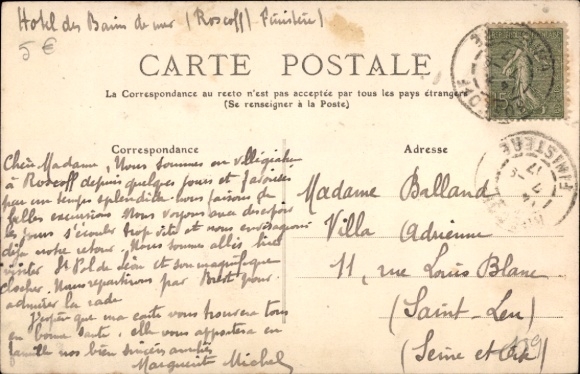 Hotel des Bains de mer (Roscoff) Finistère)
5 €
CARTE POSTALE
La Correspondance au recto n'est pas acceptée par tous les pays étrangers
(Se renseigner à la Poste)
Correspondance
Chère Madame, Nous sommes en villégiature
à Roscoff depuis quelques jours et favorisés
par un temps splendide nous faisons de
belles excursions. Nous voyons avec désespoir
les jours s'écouler trop vite et nous envisageons
déjà notre retour. Nous sommes allés hier
visiter St Pol de Léon et son magnifique
clocher. Nous repartirons par Brest pour
admirer la rade.
J'espère que ma carte vous trouvera tous
en bonne santé. elle vous apportera en
famille nos bien sincères amitiés
Marguerite Michel
Adresse
Madame Balland
Villa Adrienne
11, rue Louis Blanc
(Saint-Leu)
(Seine et Oise)
FINISTERE